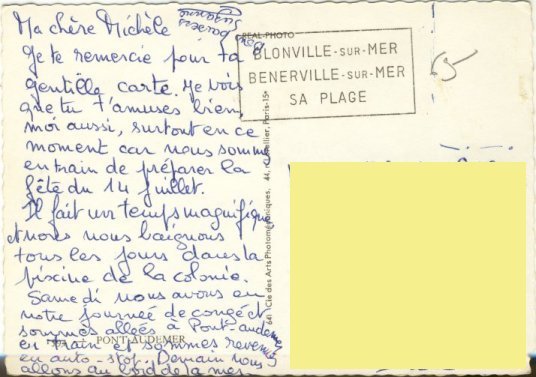 Ma chère Michèle
Je te remercie pour ta
gentille carte. Je vois
que tu t'amuses bien,
moi aussi, surtout en ce
moment car nous sommes
en train de préparer la
fête du 14 juillet.
Il fait un temps magnifique
et nous nous baignons
tous les jours dans la
piscine de la colonie.
Samedi nous avons eu
notre journée de congé et
sommes allées à Pont-audemer
en train et sommes revenues
en auto-stop. Demain nous
allons au bord de la mer
PONT-AUDEMER
bons baisers
Suzanne
REAL-PHOTO
BLONVILLE-SUR-MER
BENERVILLE-SUR-MER
SA PLAGE
Cie des Arts Photomécaniques, 44, Paris-15e